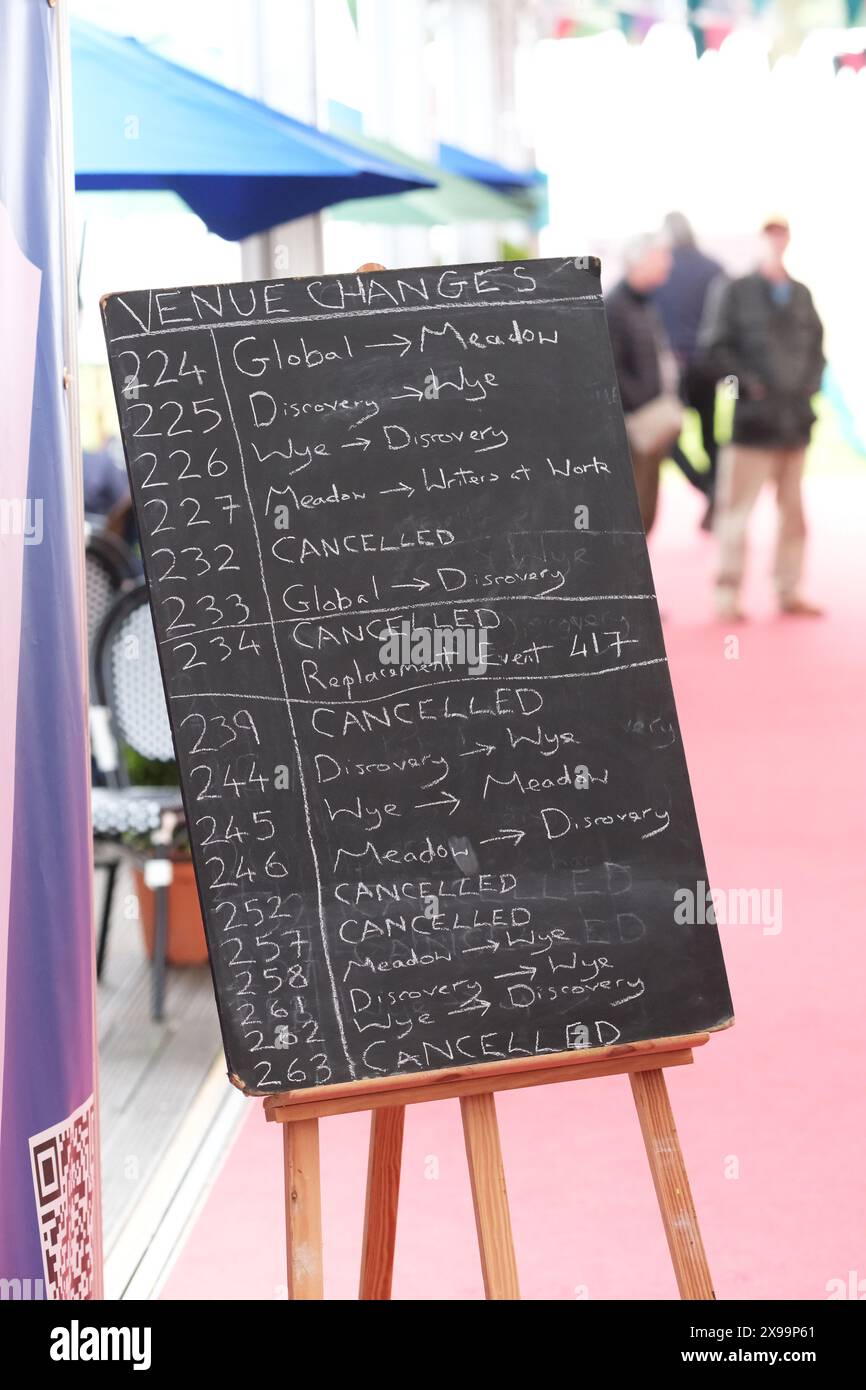 VENUE CHANGES
224 Global → Meadow
225 Discovery → Wye
226 Wye → Discovery
227 Meadow → Writers at Work
232 CANCELLED
233 Global → Discovery
234 CANCELLED
Replacement Event 417
239 CANCELLED
244 Discovery → Wye
245 Wye → Meadow
246 Meadow → Discovery
252 CANCELLED
257 CANCELLED
258 Meadow → Wye
261 Discovery → Wye
262 Wye → Discovery
263 CANCELLED
alamy
Image ID: 2X99P61
www.alamy.com